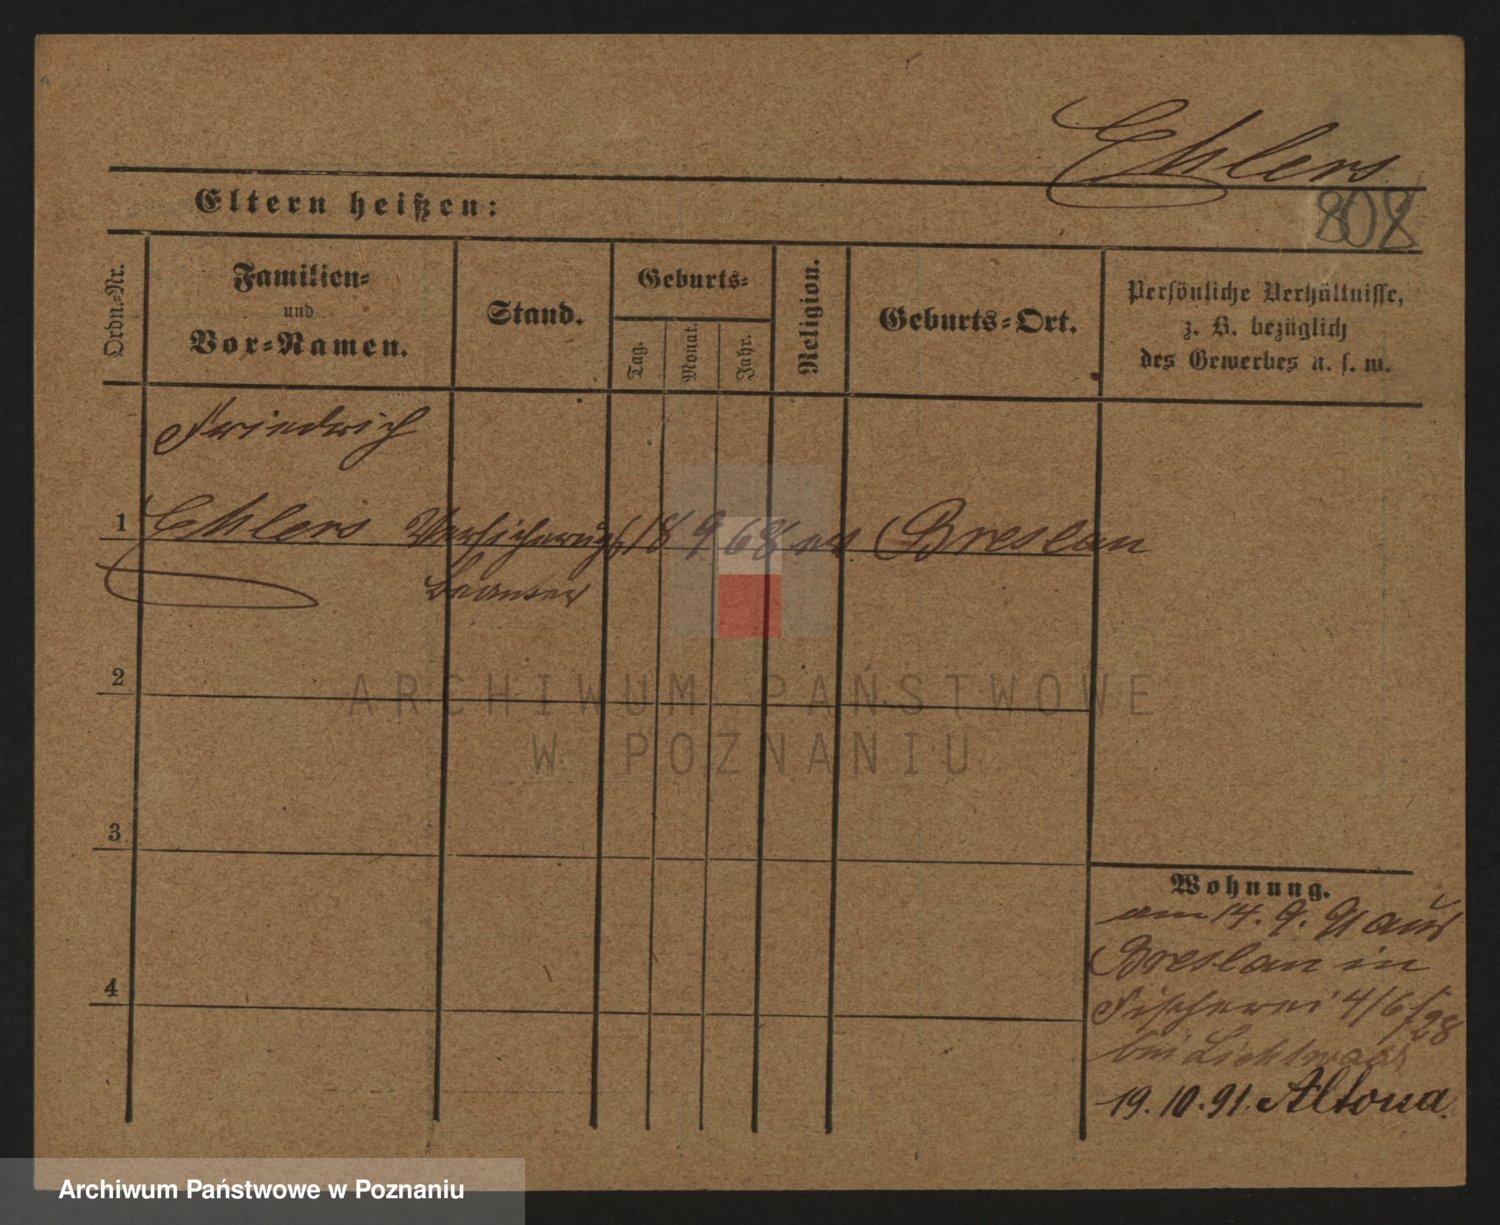 Ehlers
808
Eltern heißen:
Ordn.-Nr.
Familien-
und
Vor-Namen.
Stand.
Geburts-
Tag.
Monat.
Jahr.
Religion.
Geburts-Ort.
Persönliche Verhältnisse,
z. B. bezüglich
des Gewerbes u. s. w.
Friedrich
1 Ehlers Versicherungs 18 9 68 ev Breslau
beamter
2
3
4
Wohnung.
am 14. 9. 91 aus
Breslau in
Fischerei 4/6/28
bei
19. 10. 91. Altona.
ARCHIWUM PAŃSTWOWE
W POZNANIU
Archiwum Państwowe w Poznaniu